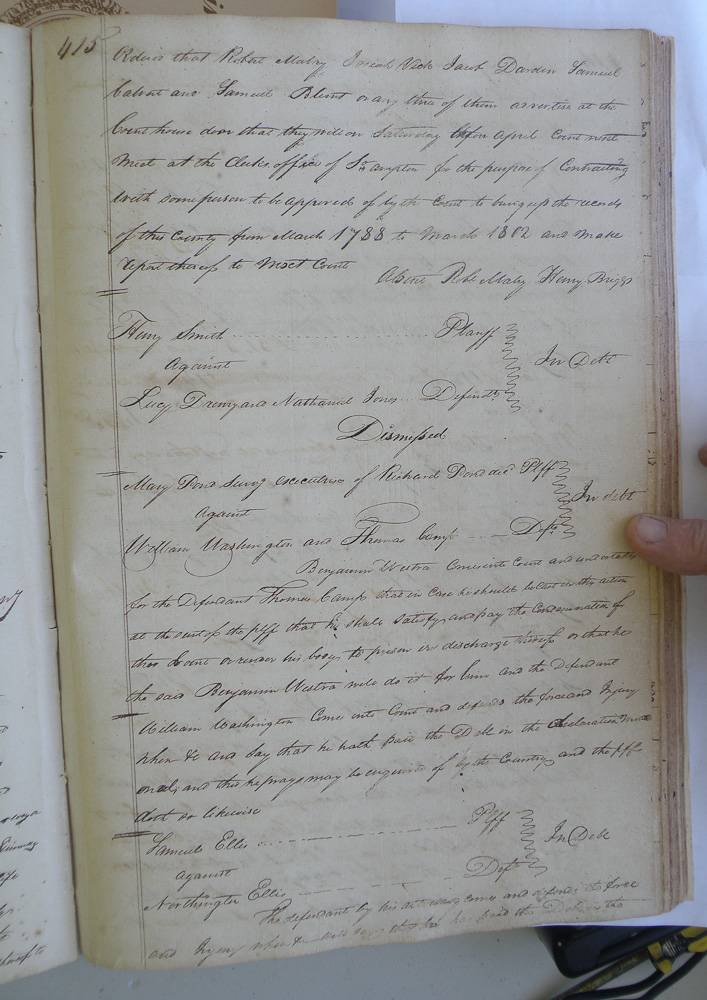 415
Orders that Robert Mabry Josiah Vick Jacob Darden Samuel
Calvert and Samuel Blunt or any three of them advertise at the
Court house door that they will on Saturday before April Court next
Meet at the Clerks office of S°ampton for the purpose of Contracting
With some person to be approved of by the Court to bring up the records
of this County from March 1788 to March 1802 and make
report thereof to Next Court
Absent Rob Mabry Henry Briggs
Henry Smith Plantff
Against In Debt
Lucy Drewry and Nathaniel Jones Defendts
Dismissed
Mary Pond Survg executrix of Richard Pond decd Plff
against In debt
William Washington and Thomas Camp Defts
Benjamin Westra Comes into Court and undertakes
for the Defendant Thomas Camp that in Case he should be cast in this action
at the suit of the plff that he shall satisfy and pay the Condemnation of
the Court or render his body to prison in discharge thereof or that he
the said Benjamin Westra will do it for him and the Defendant
William Washington Comes into Court and defends the force and Injury
when &c and say that he hath paid the Debt in the declaration
and this he prays may be enquired of by the Country and the plff
doth so likewise
Samuel Ellis Plff
against In Debt
Northington Ellis Deft
The defendant by his attorney comes and defends the force
and Injury when &c and says that he has paid the Debt in the